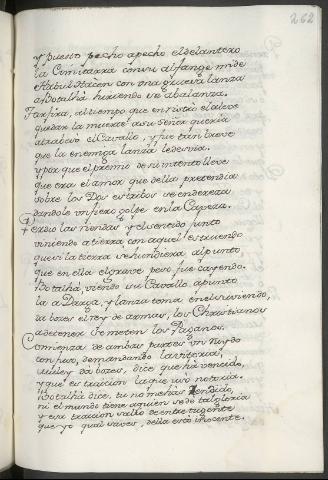 262
y puesto pecho a pecho el delantero
la Comitarra con su alfange mide
Habul Hacen con una gruesa lanza
a Botalhá huriendo se abalanza.
Tarfira, al tiempo que enristró el aleve
que dar la muerte a su Señor queria
atravesó el Cavallo, y fue tan breve
que la enemiga lanza le desvia.
y por que el premio de su intento lleve
que era el amor que della pretendia
sobre los Dos estribos se endereza
dandole un fiero golpe en la Caveza.
Perdio las riendas y el sentido junto
viniendo a tierra con aquel estruendo
que si la tierra se hundiera al punto
que en ella el grave peso fue cayendo.
Botalhá viendo su Cavallo a punto
la adarga, y lanza toma en el subiendo,
da bozes el rey de armas, los Christianos
a detener se meten los Paganos.
Comienza de ambas partes un ruydo
confuso, demandando la vitoria,
muley dá bozes, dice que há vencido,
y que es traicion la que usó notoria.
Botalhá dice, tu no me has Rendido,
ni el mundo tiene a quien se dé tal gloria
y esa traicion salio de entre tu gente
que yo qual saves, della está inocente.